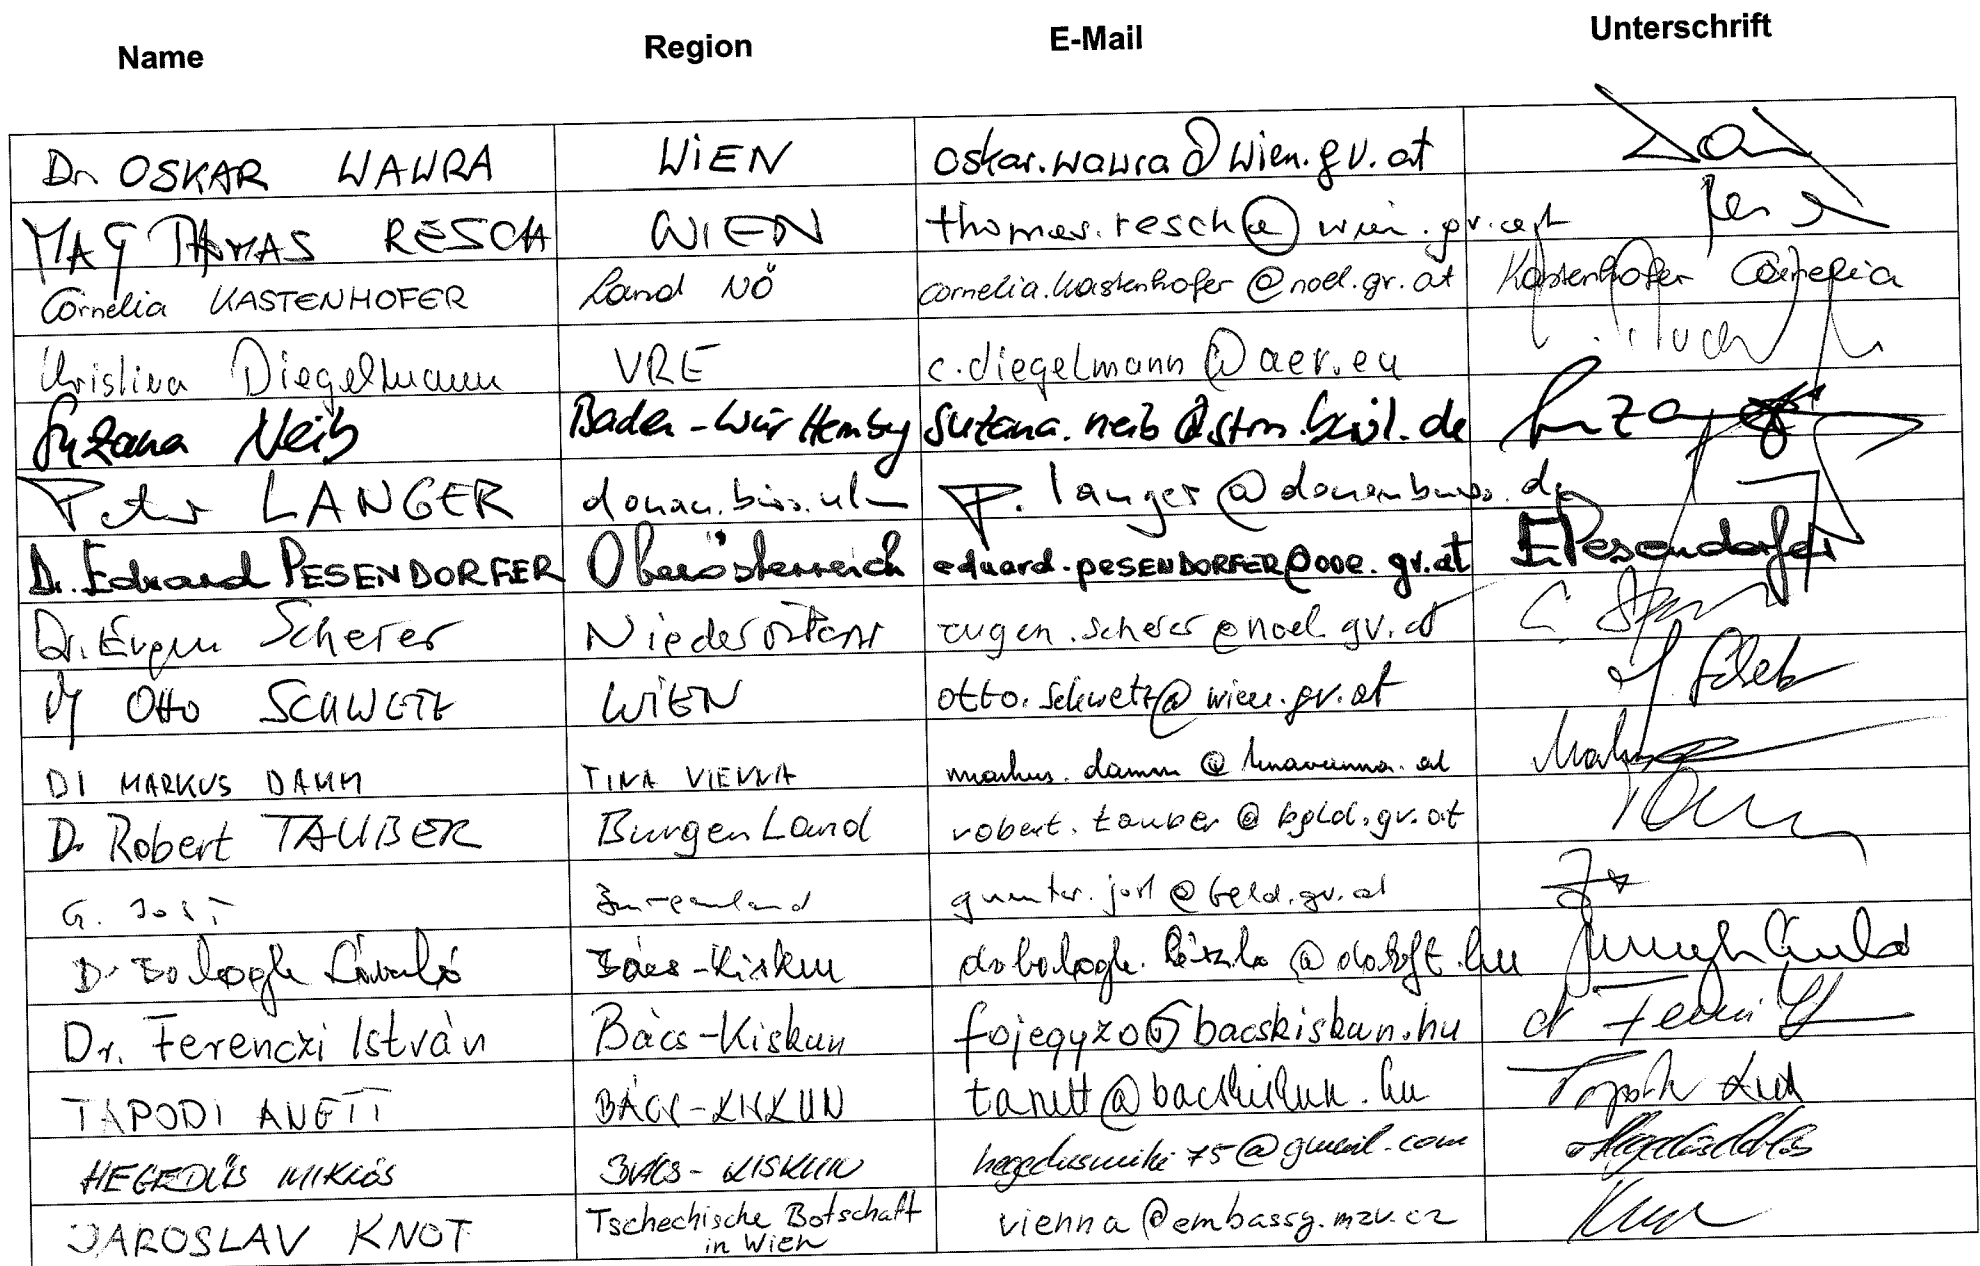 Name Region E-Mail Unterschrift
Dr. OSKAR WAWRA WIEN oskar.wawra@wien.gv.at
MAG THOMAS RESCH WIEN thomas.resch@wien.gv.at
Cornelia KASTENHOFER Land NÖ cornelia.kastenhofer@noel.gv.at Kastenhofer Cornelia
Christina Diegelmann VRE c.diegelmann@aer.eu
Suzana Neib Baden-Württemberg suzana.neib@stm.bwl.de
Peter LANGER donau.büro.ulm p.langer@donaubuero.de
Dr. Eduard PESENDORFER Oberösterreich eduard.PESENDORFER@ooe.gv.at EPesendorfer
Dr. Eugen Scherer Niederösterr eugen.scherer@noel.gv.at
OTTO SCHWETZ WIEN otto.schwetz@wien.gv.at
DI MARKUS DAMM TINA VIENNA markus.damm@tinavienna.at
Dr Robert TAUBER BurgenLand robert.tauber@bgld.gv.at
G. JOST Burgenland gunter.jost@bgld.gv.at
Dr Balogh László Bács-Kiskun
Dr. Ferenczi István Bács-Kiskun fojegyzo@bacskiskun.hu
TAPODI ANETT BÁCS-KISKUN tanett@bacskiskun.hu
HEGEDŰS MIKLÓS BÁCS-KISKUN hegedusmiki75@gmail.com
JAROSLAV KNOT Tschechische Botschaft vienna@embassy.mzv.cz
in Wien